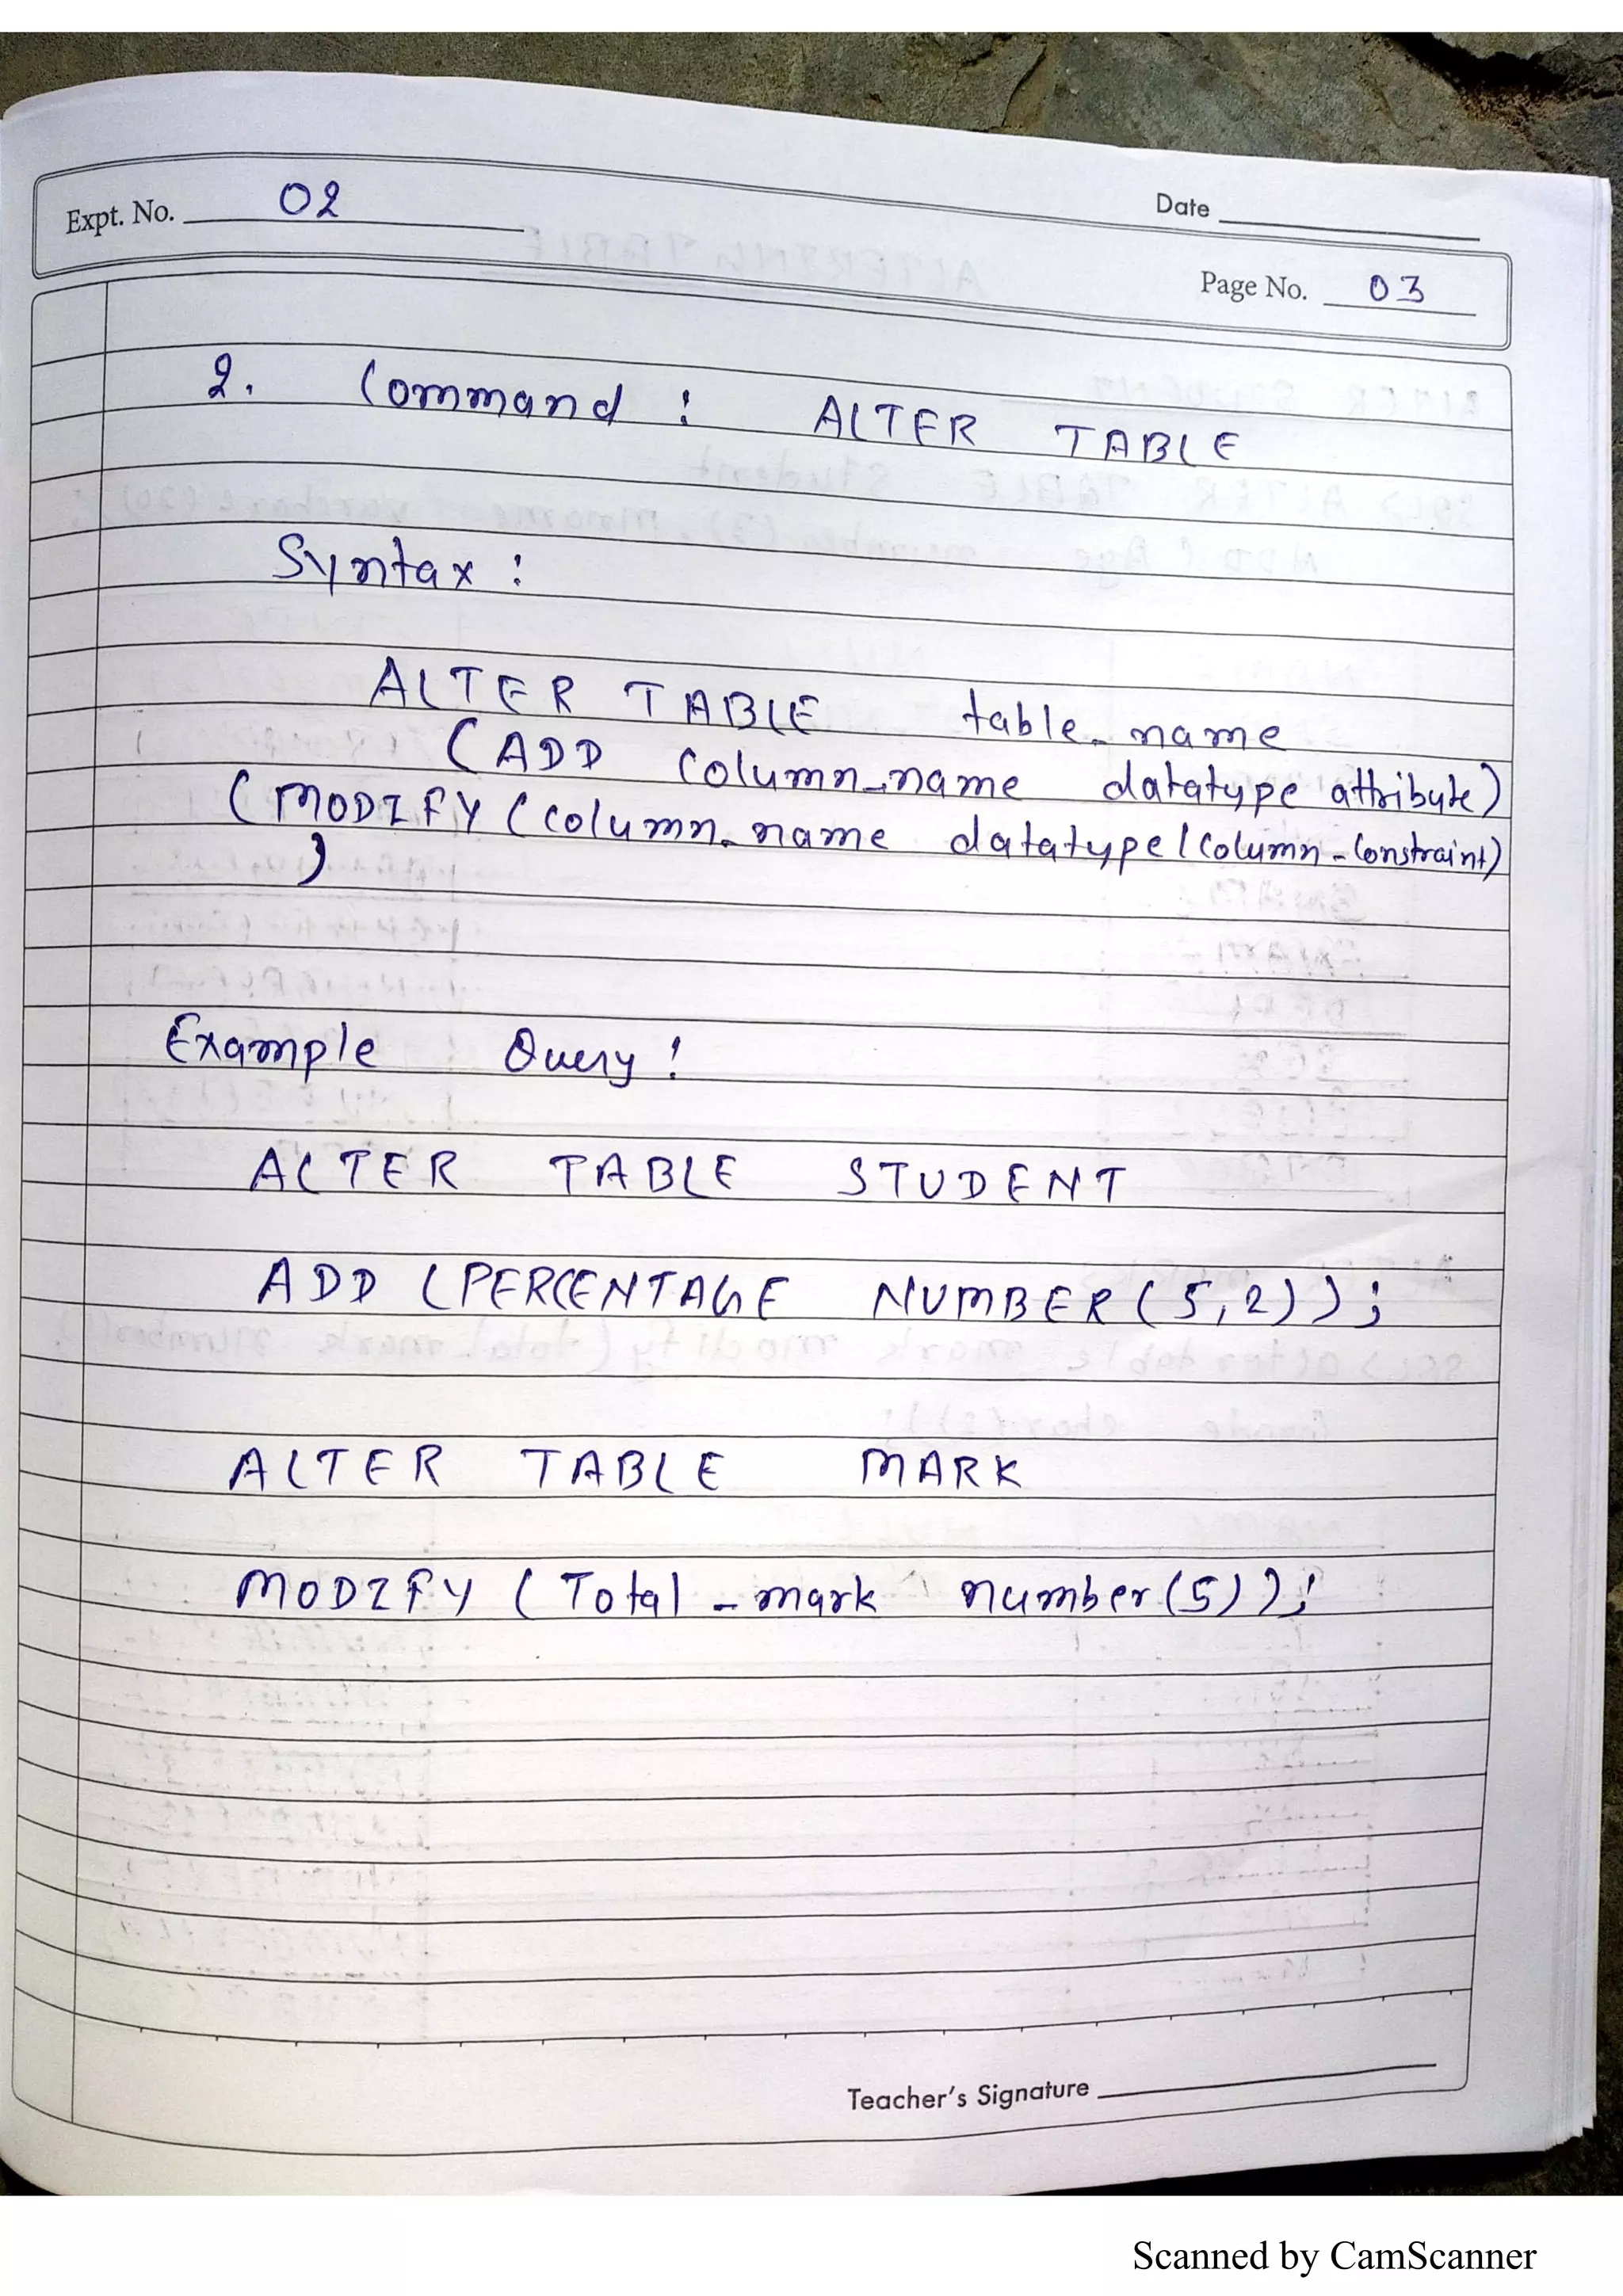 Expt. No. 02
Date
Page No. 03
2. Command : ALTER TABLE
Syntax :
ALTER TABLE table_name
(ADD Column_name datatype attribute)
(MODIFY (column_name datatype/column-Constraint)
)
Example Query :
ALTER TABLE STUDENT
ADD (PERCENTAGE NUMBER(5,2));
ALTER TABLE MARK
MODIFY (Total_mark number(5));
Teacher's Signature
Scanned by CamScanner